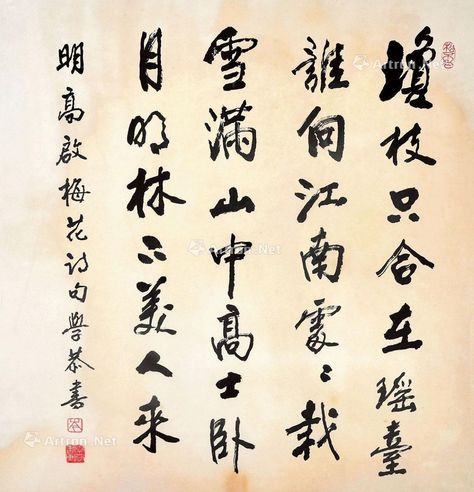 瓊枝只合在瑶臺
誰向江南處〻栽
雪滿山中高士卧
月明林下美人来
明高啟梅花詩句學恭書
Artron.Net
Artron.Net
Artron.Net